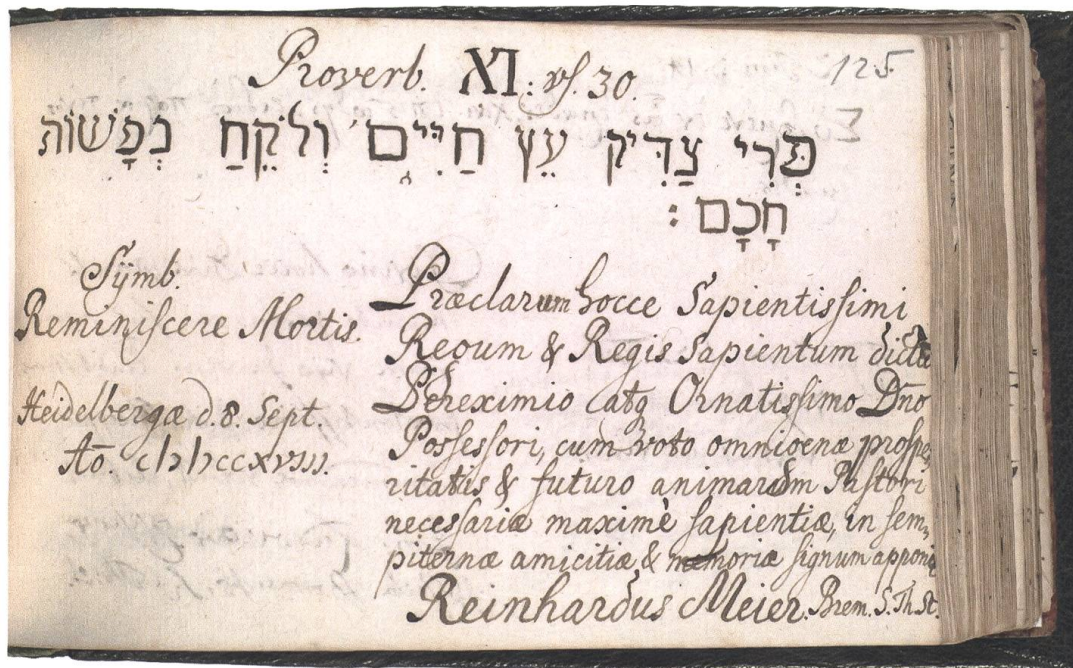 125.
Proverb. XI. vs. 30.
פְּרִי צַדִּיק עֵץ חַיִּים וְלֹקֵחַ נְפָשׁוֹת
חָכָם׃
Sÿmb.
Reminiscere Mortis.
Heidelbergæ d. 8. Sept.
Aõ. cIɔ Iɔccxvııı.
Præclarum hocce Sapientissimi
Regum & Regis Sapientum dictũ
Pereximio atq Ornatissimo Dño
Possessori, cum voto omnigenæ prospe,
ritatis & futuro animarum Pastori
necessariæ maximè sapientiæ, in sem,
piternæ amicitiæ, & memoriæ signum apponit
Reinhardus Meier. Brem. S. Th. St.